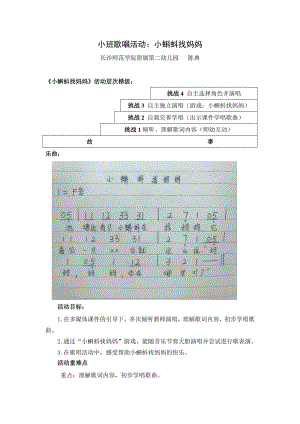 小班歌唱活动：小蝌蚪找妈妈
长沙师范学院附属第二幼儿园 陈典
《小蝌蚪找妈妈》活动层次梯级：
挑战4 自主选择角色并演唱
挑战3 自主独立演唱（游戏：小蝌蚪找妈妈）
挑战2 自我完善学唱（出示课件学唱歌曲）
挑战1 倾听、理解歌词内容（师幼互动）
故 事
乐曲：
小蝌蚪找妈妈
1=F
05 | 11 12 33 31 | 2 7 1 05 |
11 12 33 31 | 2 7 1
活动目标：
1.在多媒体课件的引导下，多次倾听教师演唱，理解歌词内容，初步学唱歌曲。
2.通过“小蝌蚪找妈妈”游戏，能随音乐节奏大胆演唱并尝试进行歌表演。
3.在歌唱活动中，感受帮助小蝌蚪找妈妈的快乐。
活动重难点
重点：理解歌词内容，初步学唱歌曲。